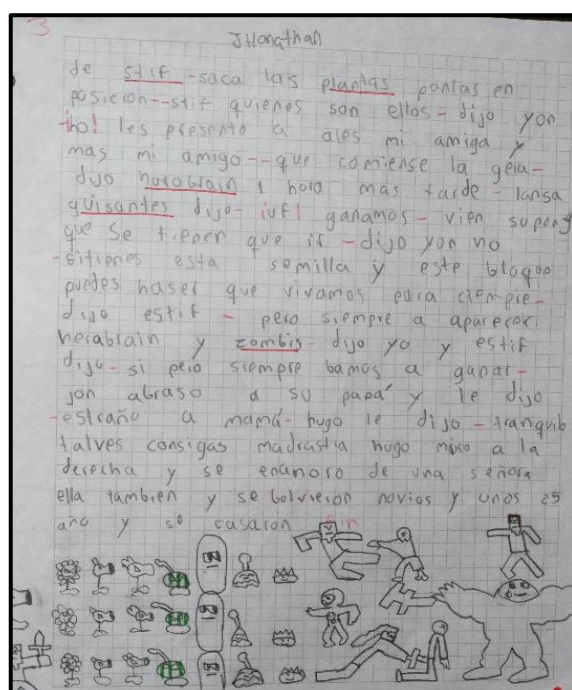 3
JHonathan
de stif -saca las plantas pontas en
posicion--stif quienes son ellos- dijo yon
-¡ho! les presento a ales mi amiga y
mas mi amigo--que comiense la gera-
dijo horobrain 1 hora mas tarde- lansa
guisantes dijo- ¡uf! ganamos- vien supong
que se tienen que ir -dijo yon no
-sitienes esta semilla y este bloque
puedes haser que vivamos para ciempre-
dijo estif - pero siempre a aparecer
herabrain y zombis- dijo yo y estif
dijo- si pero siempre bamos a ganar-
jon abraso a su papá y le dijo
-estraño a mamá- hugo le dijo - tranquilo
talves consigas madrastra hugo miro a la
derecha y se enamoro de una señora
ella tambien y se bolvieron novios y unos 25
año y se casaron fin
B!
B!
B!